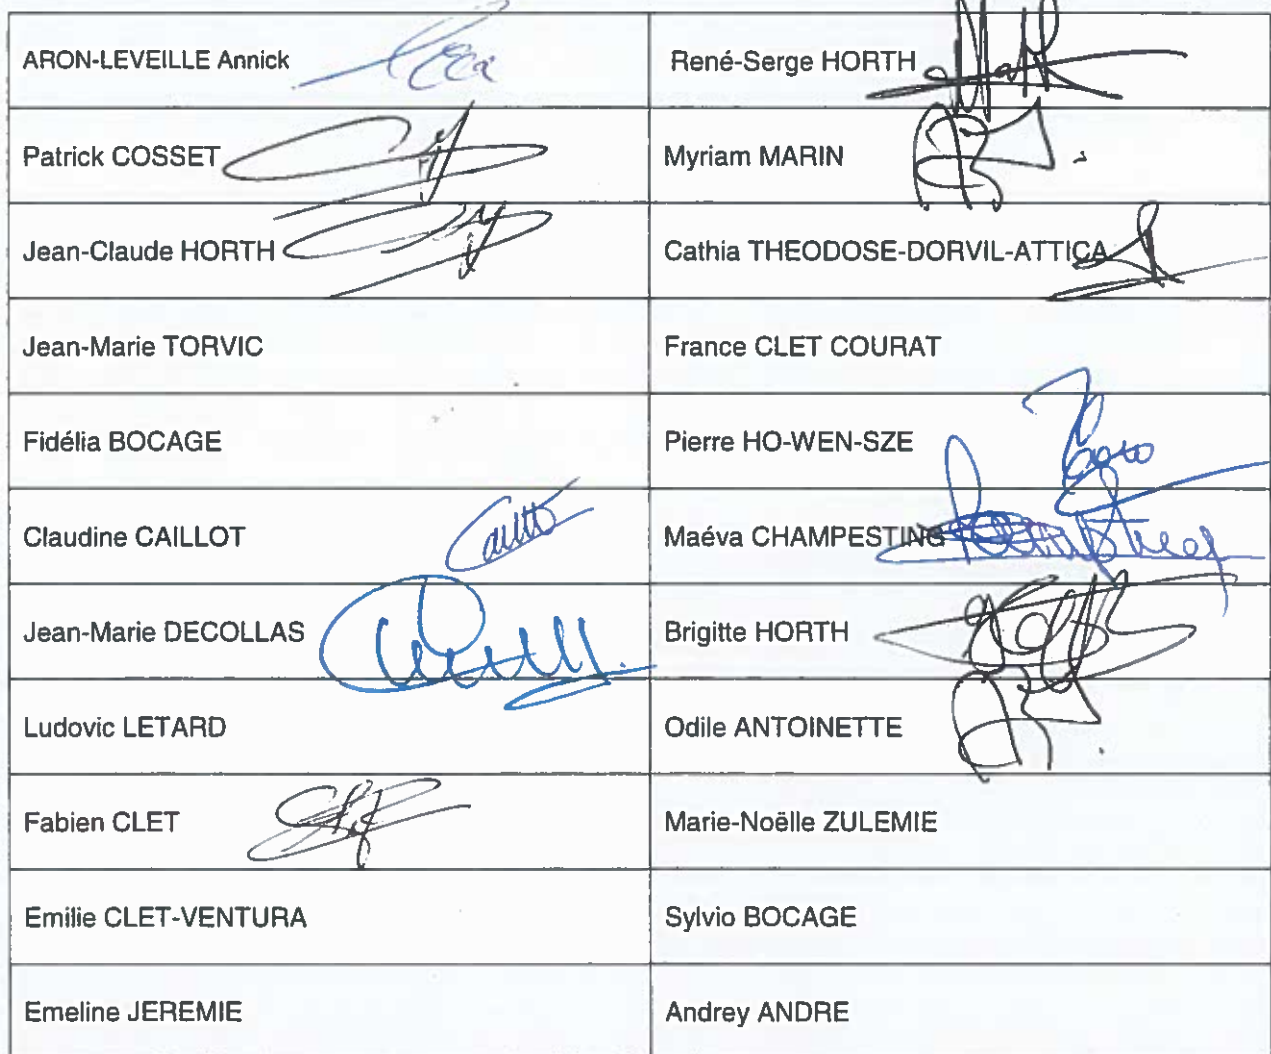 ARON-LEVEILLE Annick
René-Serge HORTH
Patrick COSSET
Myriam MARIN
Jean-Claude HORTH
Cathia THEODOSE-DORVIL-ATTICA
Jean-Marie TORVIC
France CLET COURAT
Fidélia BOCAGE
Pierre HO-WEN-SZE
Claudine CAILLOT
Maéva CHAMPESTING
Jean-Marie DECOLLAS
Brigitte HORTH
Ludovic LETARD
Odile ANTOINETTE
Fabien CLET
Marie-Noëlle ZULEMIE
Emilie CLET-VENTURA
Sylvio BOCAGE
Emeline JEREMIE
Andrey ANDRE